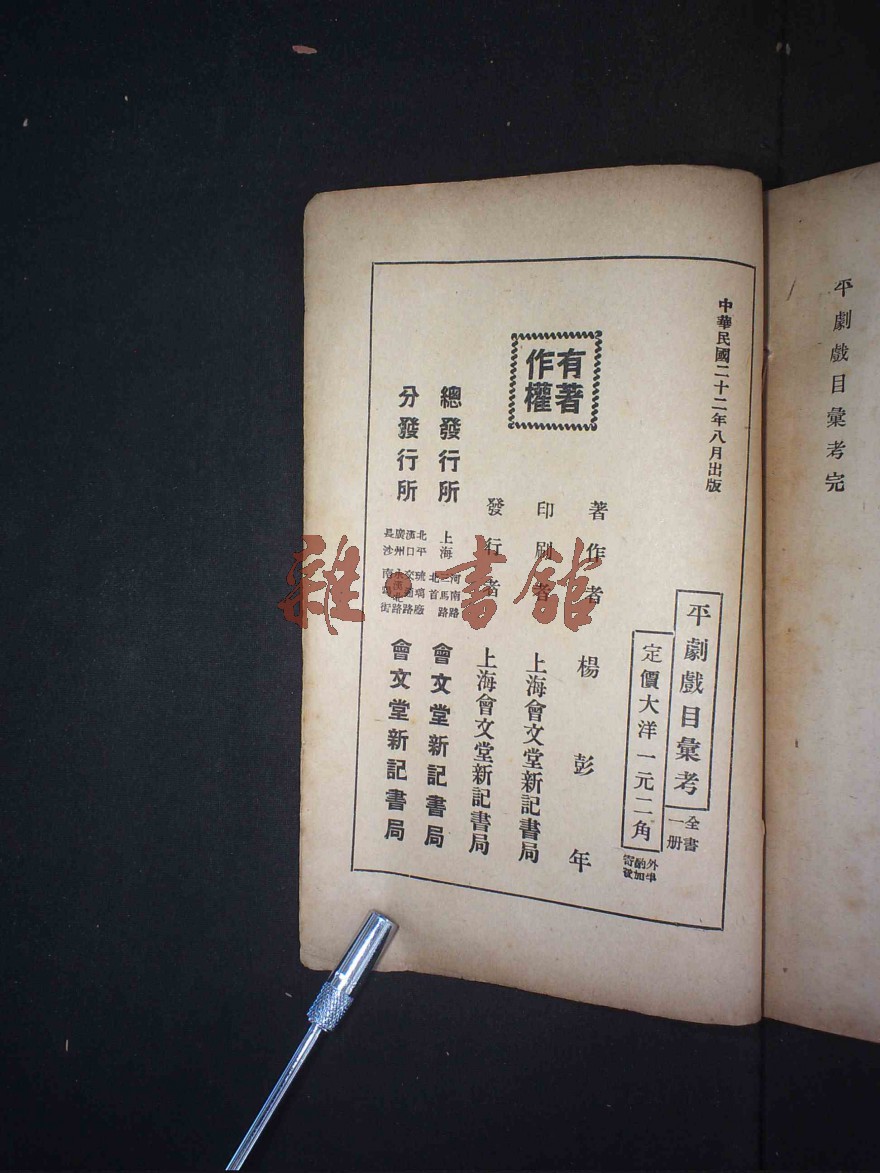 平劇戲目彙考完
中華民國二十二年八月出版
平劇戲目彙考
全書一册
定價大洋一元二角
外埠酌加寄費
有著作權
著作者 楊彭年
印刷者 上海會文堂新記書局
發行者 上海會文堂新記書局
總發行所 上海 河南路 三馬路 北首 會文堂新記書局
分發行所 北平 琉璃廠 漢口 交通路 廣州 永漢北路 長沙 南陽街 會文堂新記書局
雜·書館